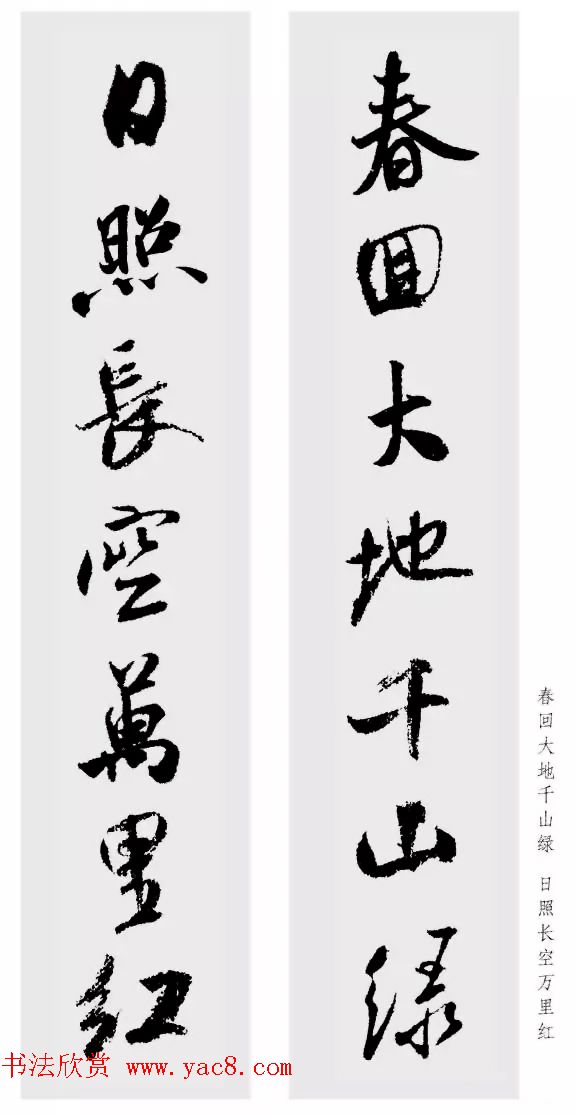 春回大地千山绿
日照長空萬里红
春回大地千山绿 日照长空万里红
书法欣赏 www.yac8.com